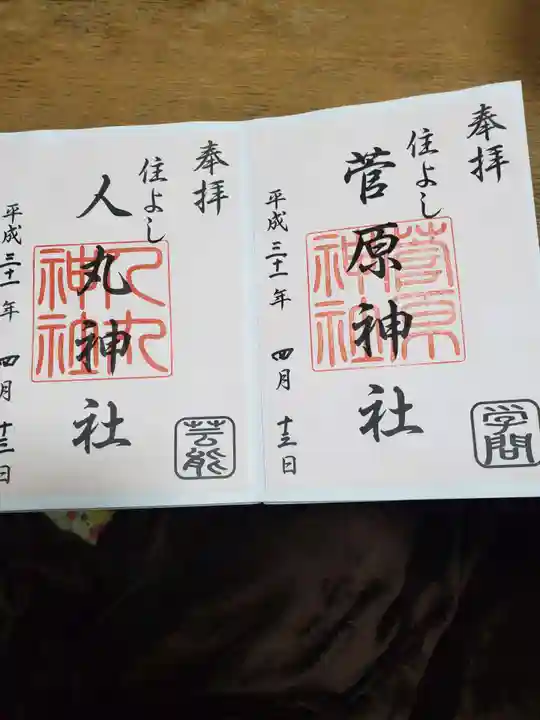 奉拝
住よし
菅原神社
菅原
神社
平成三十一年 四月 十三日
学問
奉拝
住よし
人丸神社
人丸
神社
平成三十一年 四月 十三日
芸能